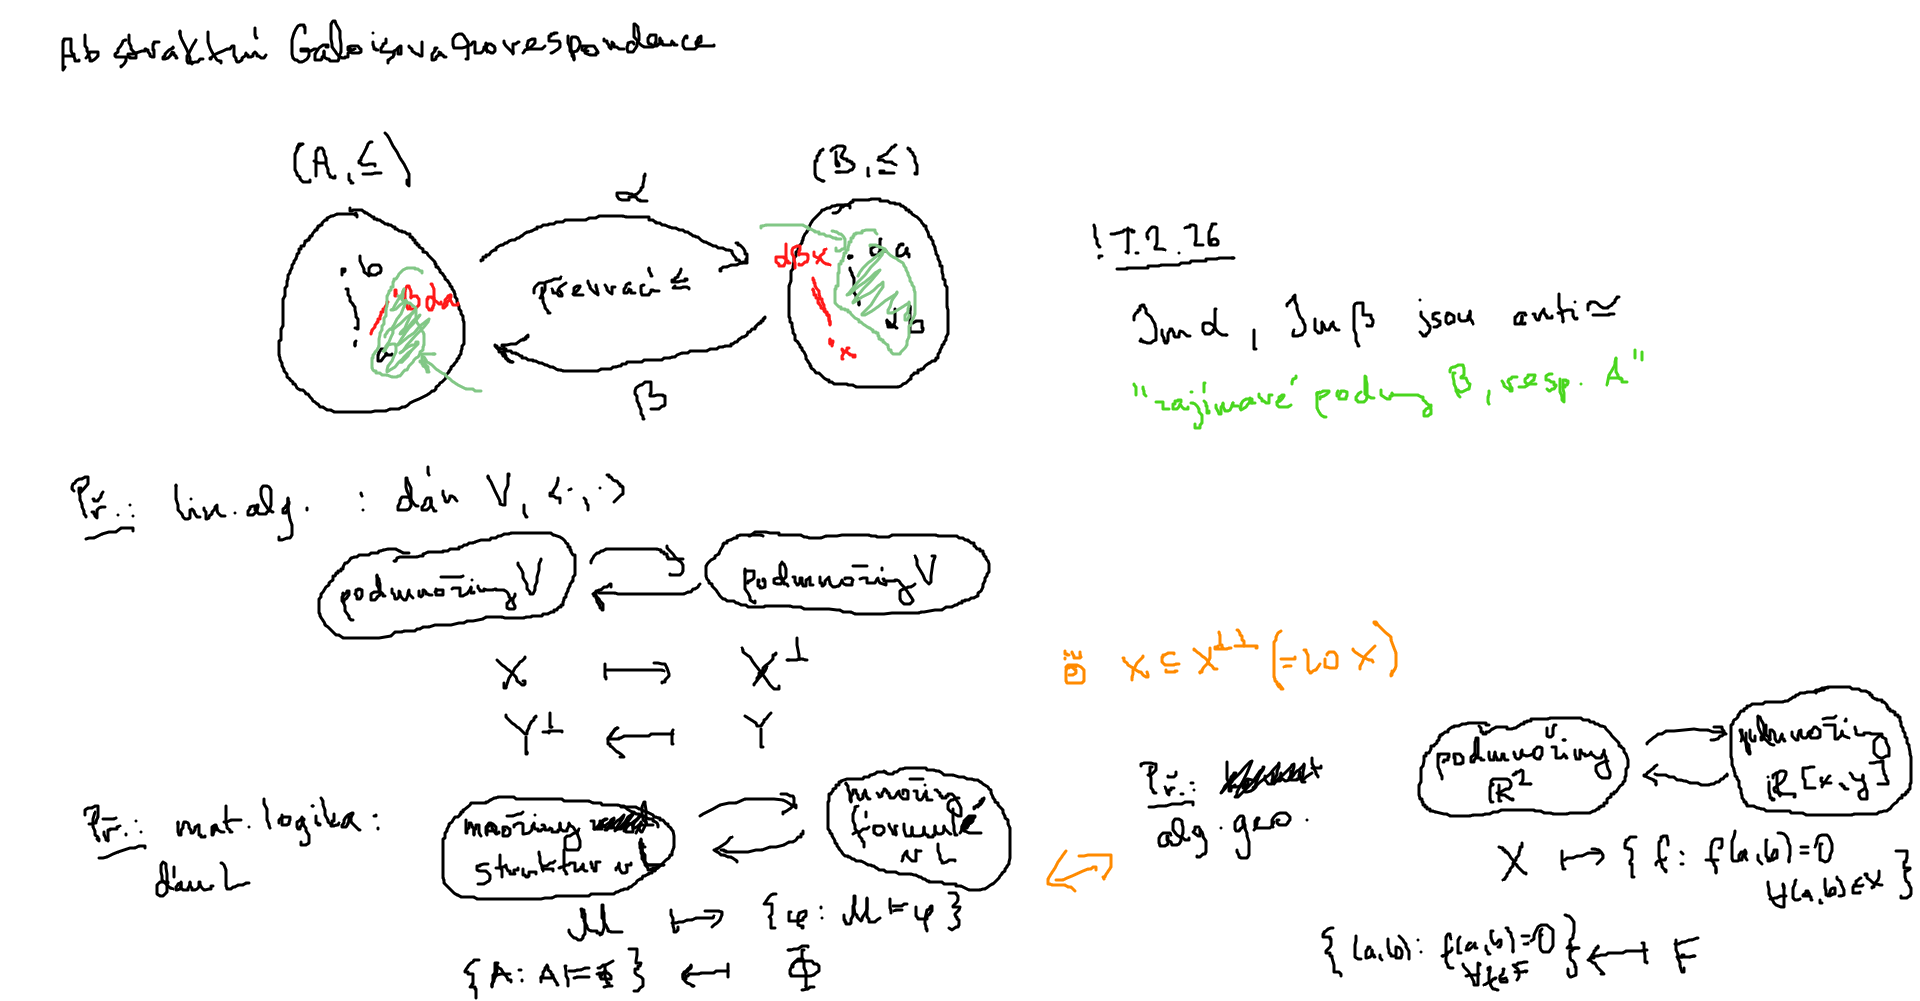 Abstraktní Galoisova korespondence
(A, ≤)
(B, ≤)
α
převrací ≤
β
b
βαa
a
αβx
αa
αb
x
! T.2.26
Im α, Im β jsou anti≃
"zajímavé podmn B, resp. A"
Př.: lin. alg. : dán V, <·,·>
podmnožiny V
podmnožiny V
X ↦ X⊥
Y⊥ ↤ Y
X ⊆ X⊥⊥ (= LO X)
Př.: mat. logika:
dán L
množiny
struktur v L
množiny
formulí
v L
M ↦ {φ: M ⊨ φ}
{A: A ⊨ Φ} ↤ Φ
Př.:
alg. geo.
podmnožiny
R²
podmnožiny
R[x,y]
X ↦ {f: f(a,b)=0
∀(a,b)∈X}
{(a,b): f(a,b)=0} ↤ F
∀f∈F